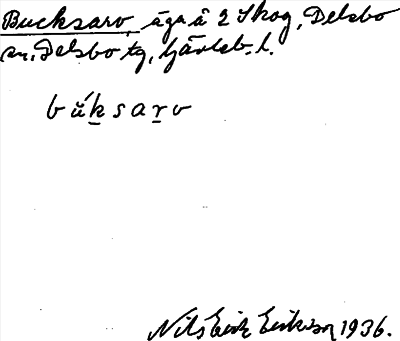 Bucksarv äga å 2 Skog, Delsbo
sn, Delsbo tg, Gävleb. l.
bŭ́ḵsaṟv
Nils Erik Erikson 1936.